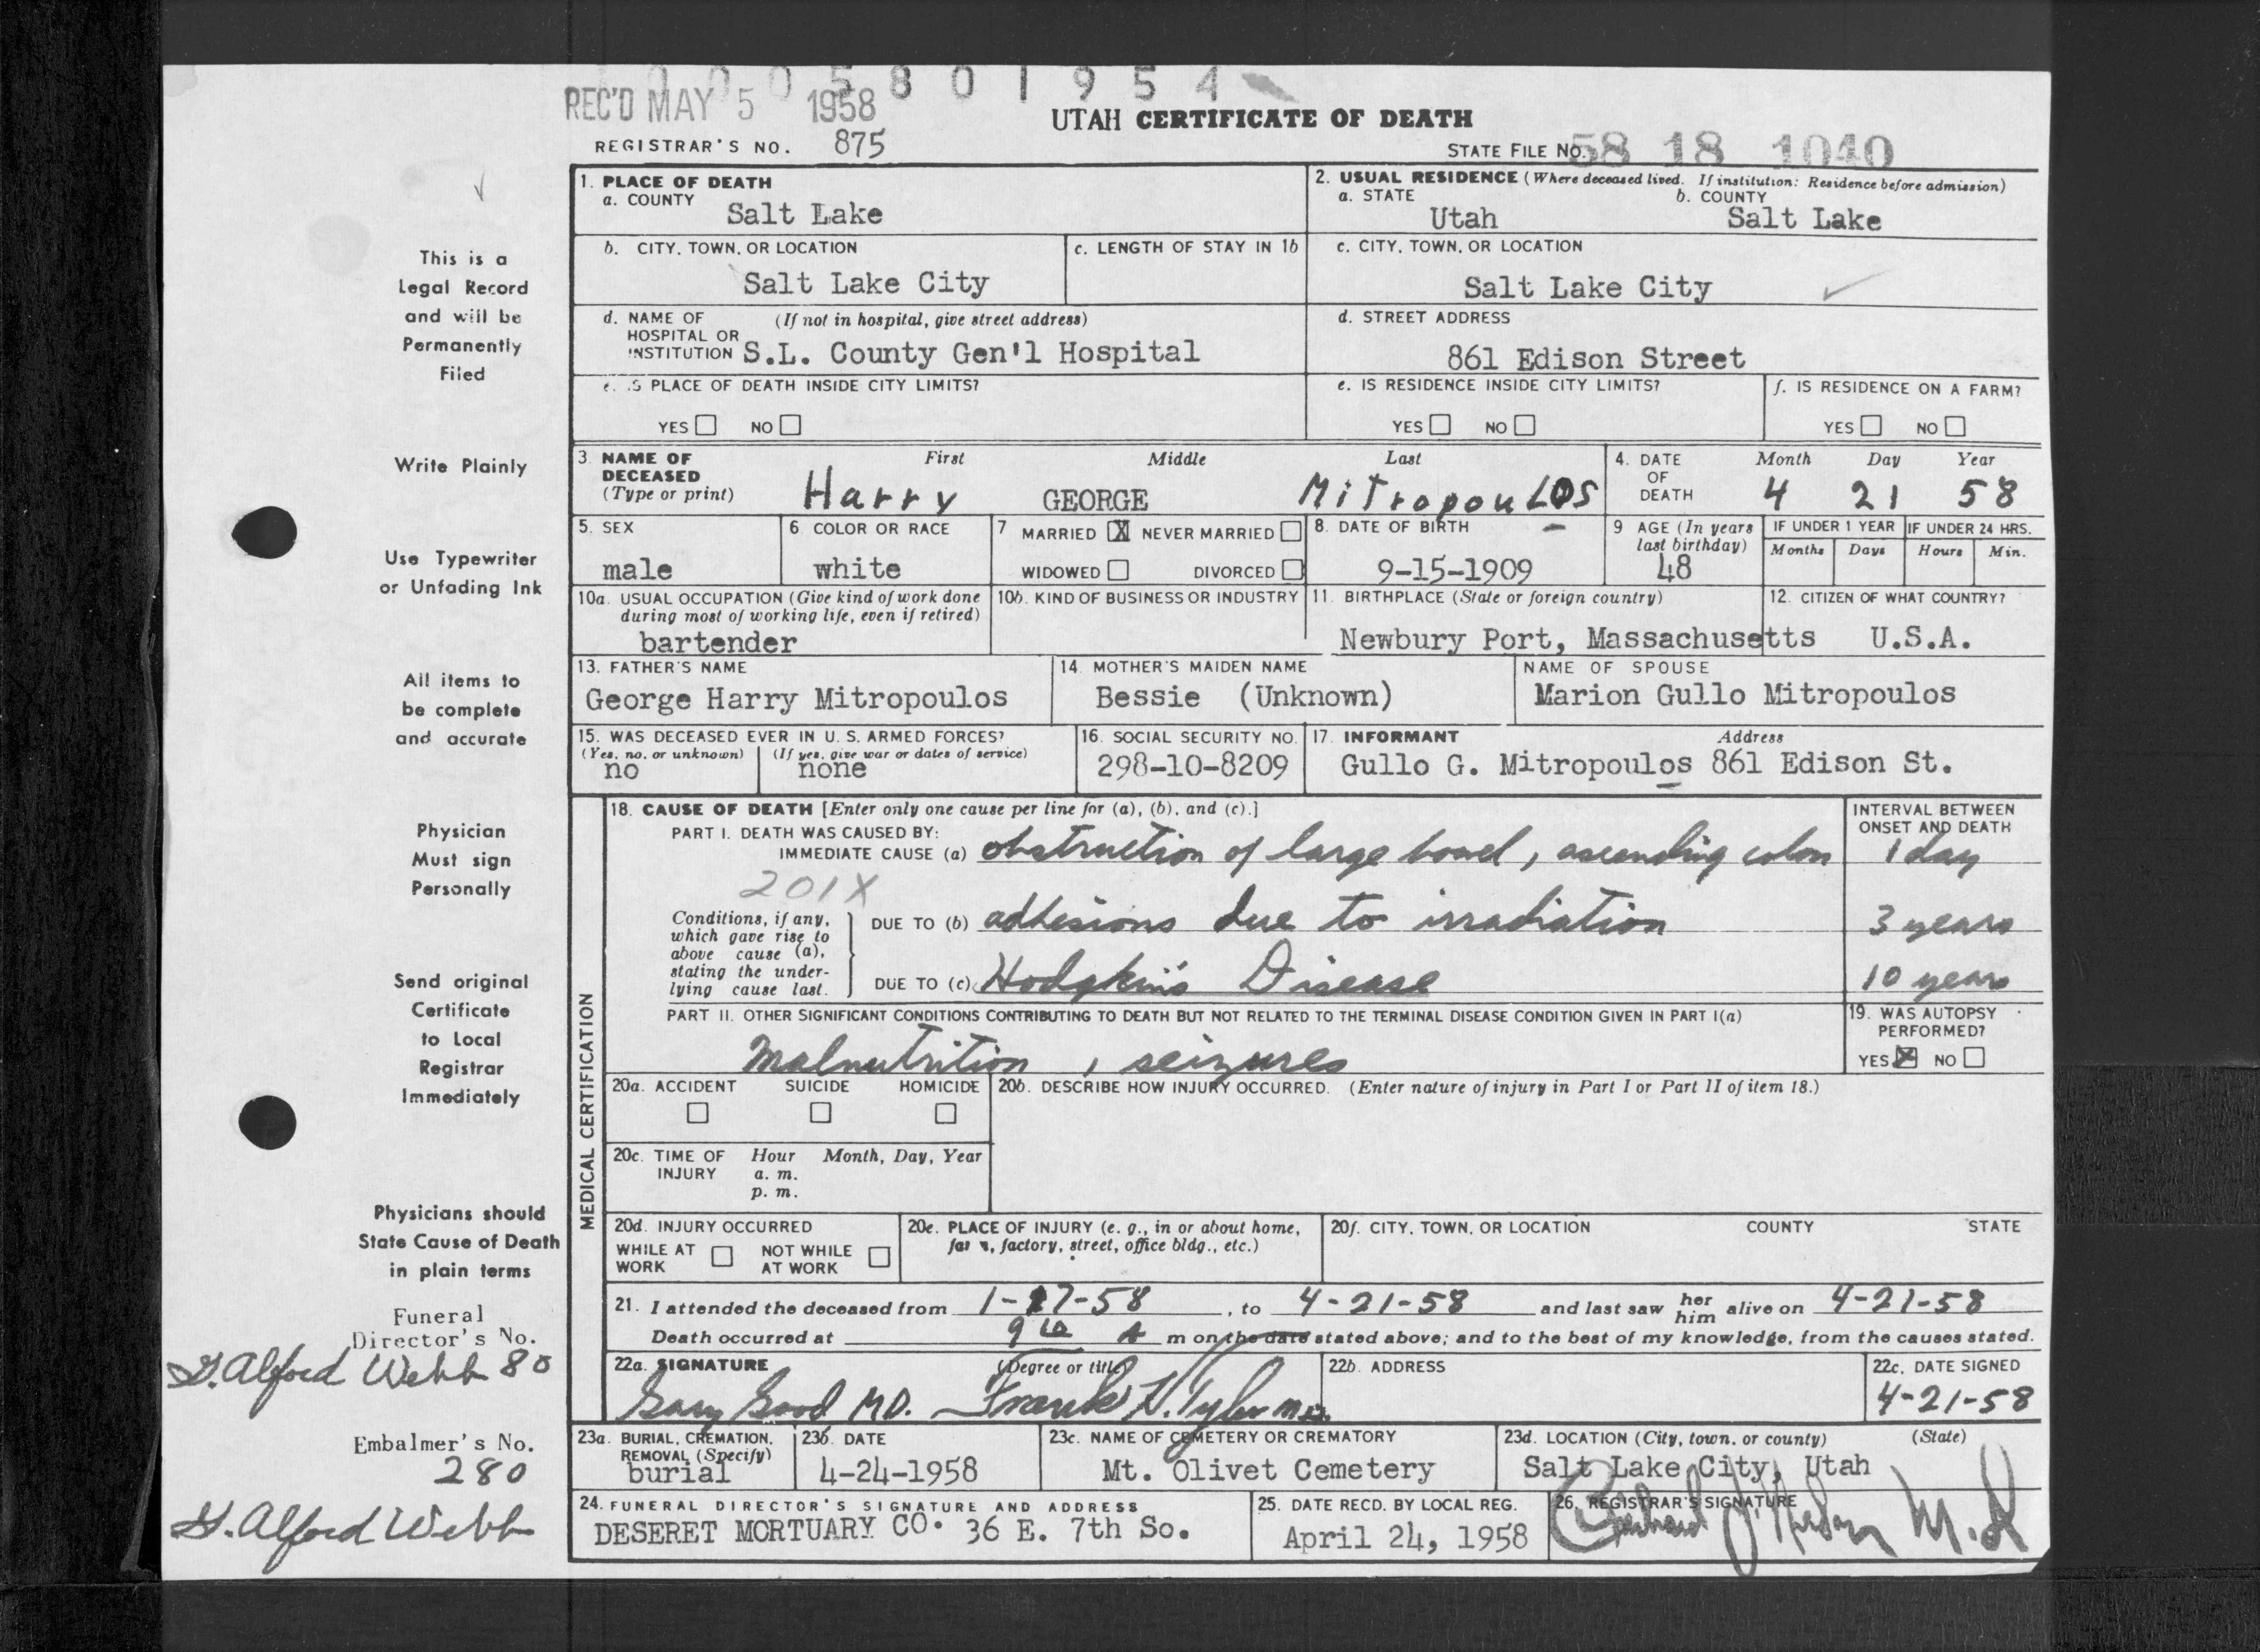 0 0 0 5 8 0 1 9 5 4
REC'D MAY 5 1958
UTAH CERTIFICATE OF DEATH
REGISTRAR'S NO. 875
STATE FILE NO. 58 18 1040
This is a
Legal Record
and will be
Permanently
Filed
Write Plainly
Use Typewriter
or Unfading Ink
All items to
be complete
and accurate
Physician
Must sign
Personally
Send original
Certificate
to Local
Registrar
Immediately
Physicians should
State Cause of Death
in plain terms
Funeral
Director's No.
G. Alford Webb 80
Embalmer's No.
280
G. Alford Webb
1. PLACE OF DEATH
a. COUNTY
Salt Lake
2. USUAL RESIDENCE (Where deceased lived. If institution: Residence before admission)
a. STATE b. COUNTY
Utah Salt Lake
b. CITY, TOWN, OR LOCATION
Salt Lake City
c. LENGTH OF STAY IN 1b
c. CITY, TOWN, OR LOCATION
Salt Lake City
d. NAME OF (If not in hospital, give street address)
HOSPITAL OR
INSTITUTION S.L. County Gen'l Hospital
d. STREET ADDRESS
861 Edison Street
e. IS PLACE OF DEATH INSIDE CITY LIMITS?
YES NO
e. IS RESIDENCE INSIDE CITY LIMITS?
YES NO
f. IS RESIDENCE ON A FARM?
YES NO
3. NAME OF First Middle Last
DECEASED
(Type or print) Harry GEORGE MiTropouLOS
4. DATE Month Day Year
OF
DEATH 4 21 58
5. SEX
male
6. COLOR OR RACE
white
7 MARRIED X NEVER MARRIED
WIDOWED DIVORCED
8. DATE OF BIRTH
9-15-1909
9 AGE (In years
last birthday)
48
IF UNDER 1 YEAR IF UNDER 24 HRS.
Months Days Hours Min.
10a. USUAL OCCUPATION (Give kind of work done
during most of working life, even if retired)
bartender
10b. KIND OF BUSINESS OR INDUSTRY
11. BIRTHPLACE (State or foreign country)
Newbury Port, Massachusetts
12. CITIZEN OF WHAT COUNTRY?
U.S.A.
13. FATHER'S NAME
George Harry Mitropoulos
14. MOTHER'S MAIDEN NAME
Bessie (Unknown)
NAME OF SPOUSE
Marion Gullo Mitropoulos
15. WAS DECEASED EVER IN U. S. ARMED FORCES?
(Yes, no, or unknown) (If yes, give war or dates of service)
no none
16. SOCIAL SECURITY NO.
298-10-8209
17. INFORMANT Address
Gullo G. Mitropoulos 861 Edison St.
MEDICAL CERTIFICATION
18. CAUSE OF DEATH [Enter only one cause per line for (a), (b), and (c).]
INTERVAL BETWEEN
ONSET AND DEATH
PART I. DEATH WAS CAUSED BY:
IMMEDIATE CAUSE (a) obstruction of large bowel, ascending colon 1 day
201X
Conditions, if any,
which gave rise to
above cause (a),
stating the under-
lying cause last.
DUE TO (b) adhesions due to irradiation 3 years
DUE TO (c) Hodgkin's Disease 10 years
PART II. OTHER SIGNIFICANT CONDITIONS CONTRIBUTING TO DEATH BUT NOT RELATED TO THE TERMINAL DISEASE CONDITION GIVEN IN PART I(a)
Malnutrition, seizures
19. WAS AUTOPSY
PERFORMED?
YES X NO
20a. ACCIDENT SUICIDE HOMICIDE
20b. DESCRIBE HOW INJURY OCCURRED. (Enter nature of injury in Part I or Part II of item 18.)
20c. TIME OF Hour Month, Day, Year
INJURY a. m.
p. m.
20d. INJURY OCCURRED
WHILE AT NOT WHILE
WORK AT WORK
20e. PLACE OF INJURY (e. g., in or about home,
farm, factory, street, office bldg., etc.)
20f. CITY, TOWN, OR LOCATION COUNTY STATE
21. I attended the deceased from 1-27-58, to 4-21-58 and last saw her him alive on 4-21-58
Death occurred at 9 10 A m on the date stated above; and to the best of my knowledge, from the causes stated.
22a. SIGNATURE (Degree or title)
Gary Good M.D. Frank H. Tyler M.D.
22b. ADDRESS
22c. DATE SIGNED
4-21-58
23a. BURIAL, CREMATION,
REMOVAL (Specify)
burial
23b. DATE
4-24-1958
23c. NAME OF CEMETERY OR CREMATORY
Mt. Olivet Cemetery
23d. LOCATION (City, town, or county) (State)
Salt Lake City, Utah
24. FUNERAL DIRECTOR'S SIGNATURE AND ADDRESS
DESERET MORTUARY CO. 36 E. 7th So.
25. DATE RECD. BY LOCAL REG.
April 24, 1958
26. REGISTRAR'S SIGNATURE